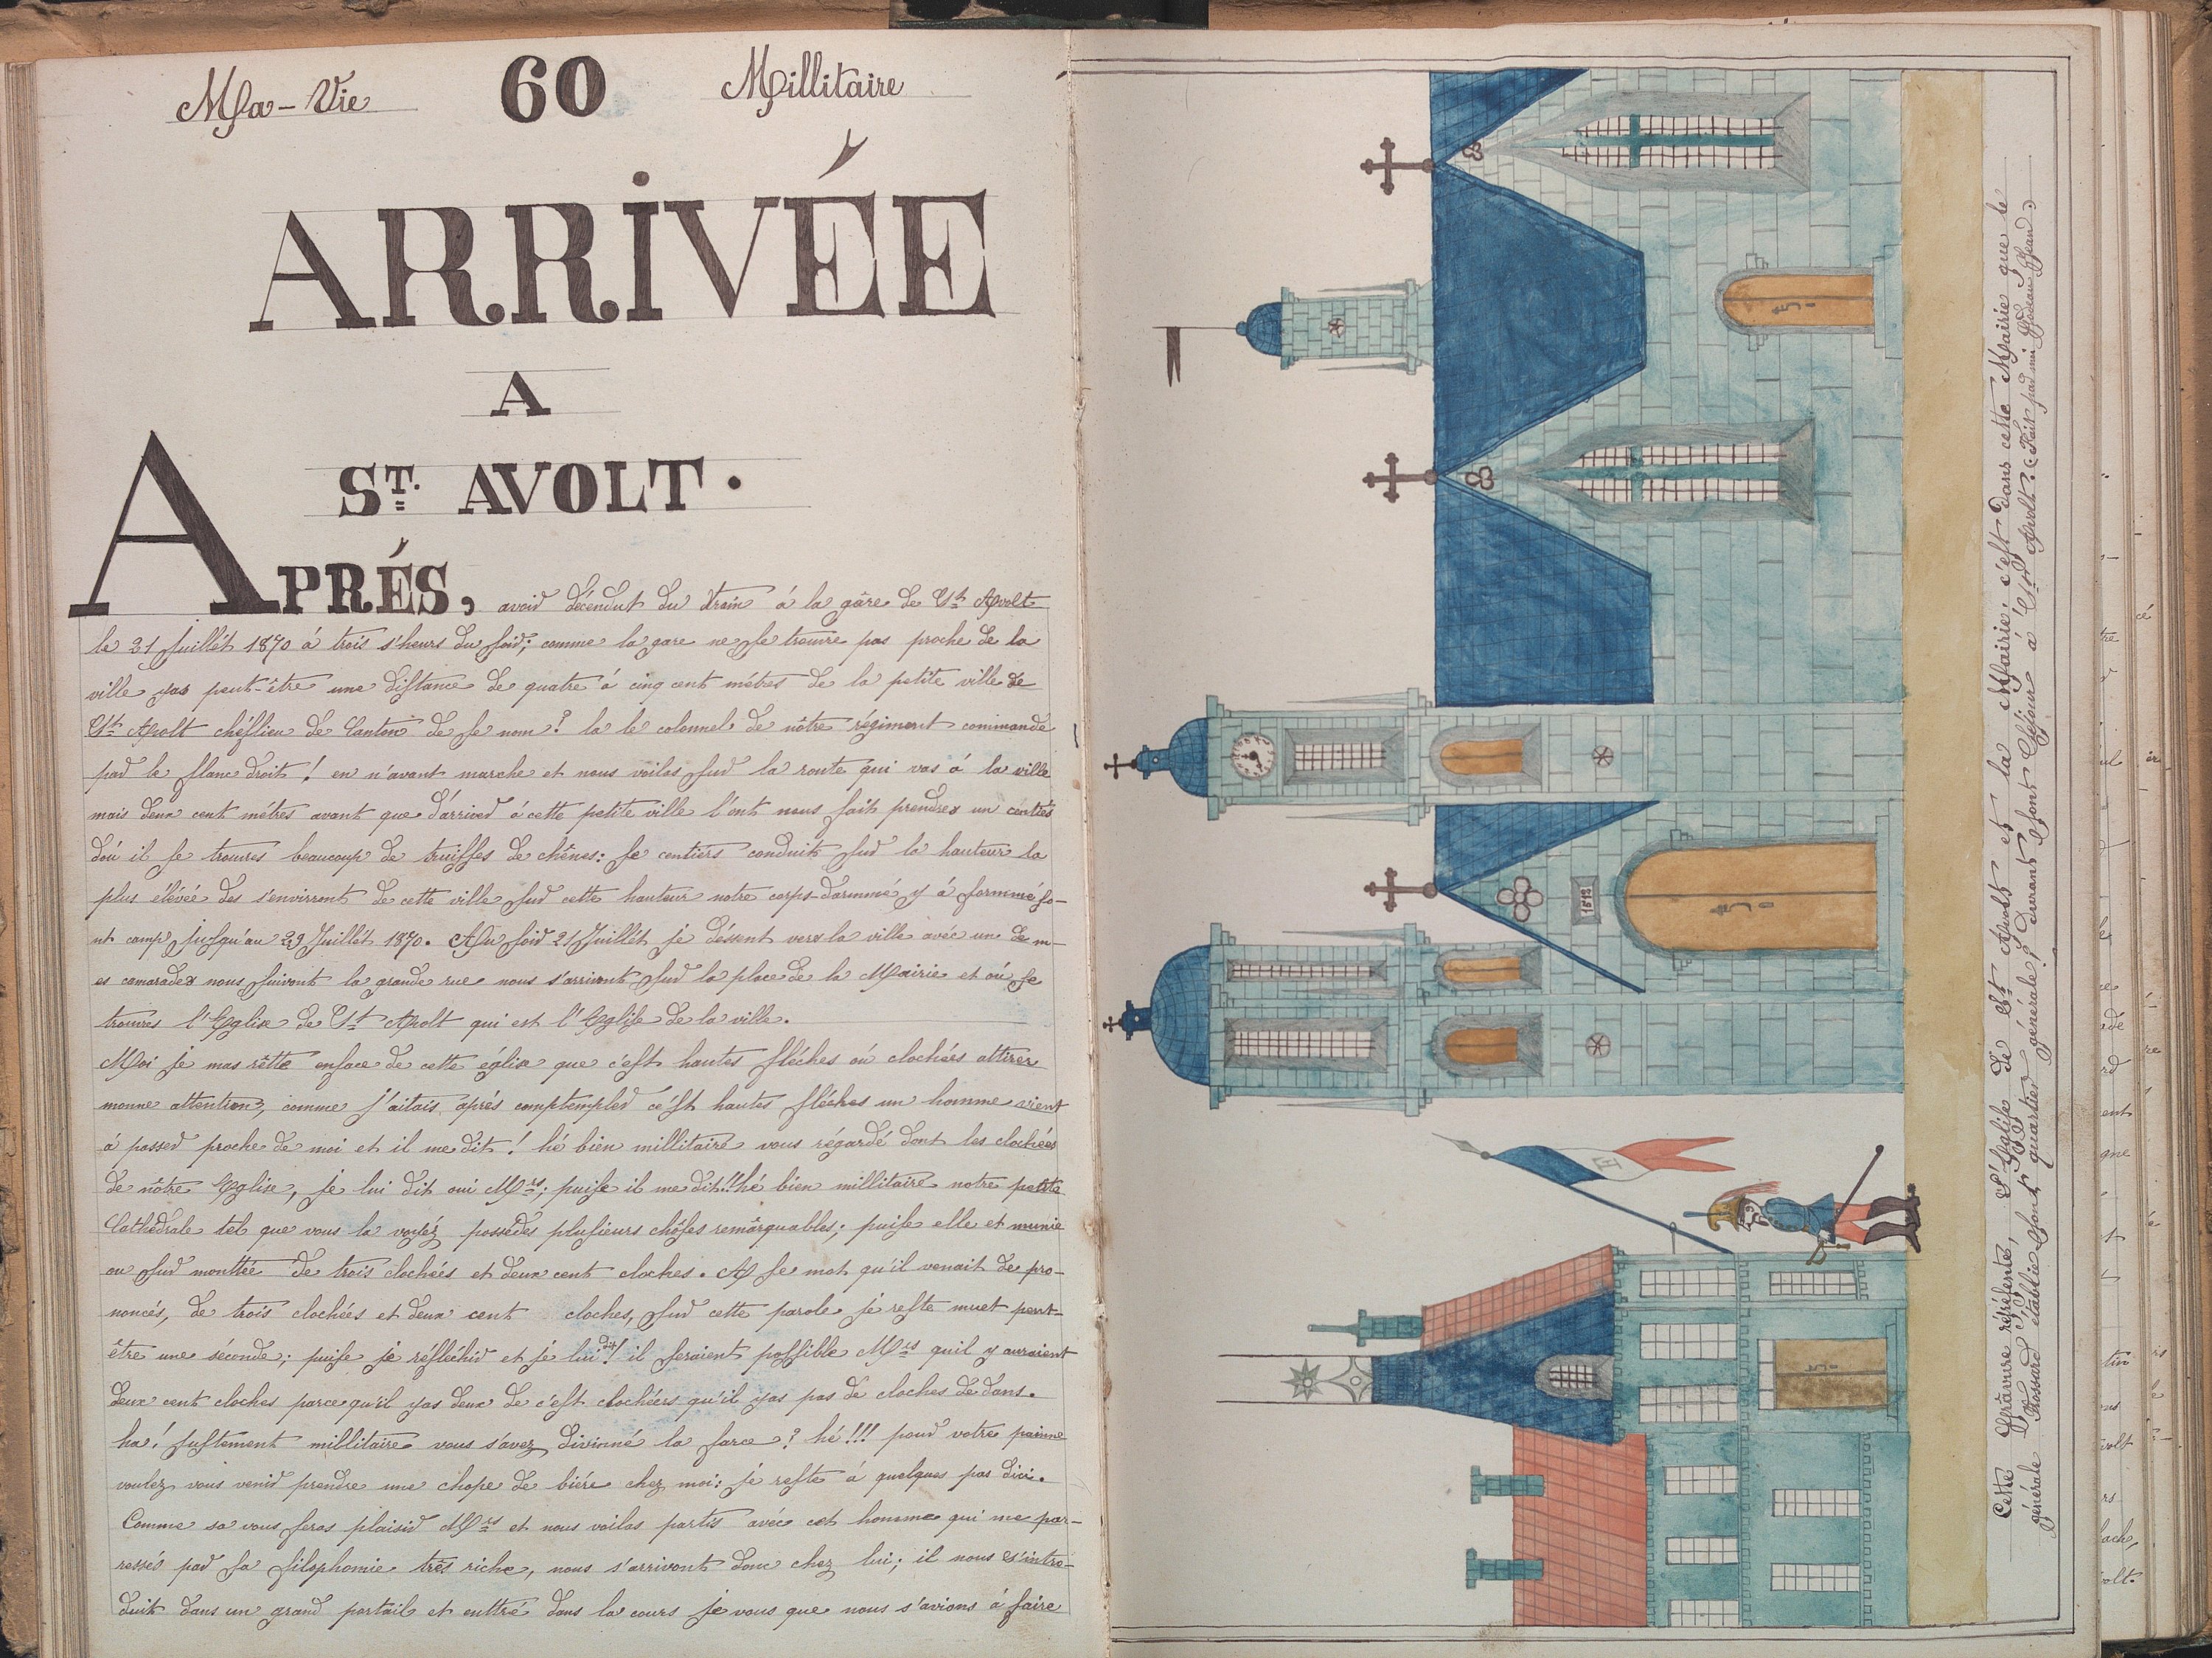 Ma-Vie 60 Millitaire
ARRIVÉE
A
ST. AVOLT.
APRÉS, avoir décendut du train á la gâre de St Avolt
le 21 Juillét 1870 á trois s'heurs du soir; comme la gare ne se trouve pas proche de la
ville yas peut-être une distance de quatre á cinq cent métres de la petite ville de
St Avolt chéflieu de Canton de se nom? la le colonnel de nôtre régiment commande
par le flanc droit! en n'avant marche et nous voilas sur la route qui vas á la ville
mais deux cent métres avant que d'arriver á cette petite ville l'ont nous fait prendres un centiés
dóu il se trouves beaucoup de truiffes de chênes: se centiérs conduit sur la hauteur la
plus élévée des s'environt de cette ville sur cette hauteur notre corps-d'armmé y á formmé so-
nt camp jusqu'au 29 Juillét 1870. Au soir 21 Juillét je déssent vers la ville avéc un de m-
es camarades nous suivont la grande rue nous s'arrivont sur la place de la Mairie et oú se
trouves l'Eglise de St Avolt qui est l'Eglise de la ville.
Moi je mas rêtte enface de cette églize que c'est hautes fléches oú clochées attirer
monne attention, comme j'aitais áprés comptempler ce'st hautes fléches un homme vient
á passer proche de moi et il me dit! hé bien millitaire vous régardé dont les clochées
de nôtre Eglise, je lui dit oui Mrs; puise il me dit!! hé bien millitaire notre petite
Cathédrale tel que vous la voyéz possédes plusieurs chôses remârquables; puise elle et munie
ou sur monttée de trois clochées et deux cent cloches. A se mot qu'il venait de pro-
noncés, de trois clochées et deux cent cloches, sur cette parole je reste muet peut-
être une séconde; puise je réfléchir et jé lui dit! il seraient possible Mrs quil y auraient
deux cent cloches parce qu'il yas deux de c'est clochéers qu'il yas pas de cloches de dans.
ha! justement millitaire vous s'avez divininé la farce? hé!!! pour votre painne
voulez vous venir prendre une chope de biére chez moi: jé reste á quelques pas dici.
Comme sa vous feras plaisir Mrs et nous voilas partis avéc cet homme qui me par-
ressés par sa filosphomie trés riche, nous s'arrivont donc chez lui; il nous s'intro-
duit dans un grand portail et enttré dans la cours je vous que nous s'avions á faire
1512
Cette Gravure réprésente, l'Eglise de St Avolt et la Mairie, c'est dans cette Mairie que le
générale Frossard établie sont quartier générale! durant sont séjour á St Avolt. Fait par moi